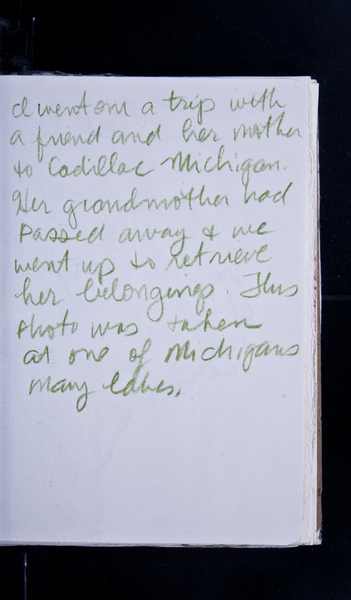 I went on a trip with
a friend and her mother
to Cadillac Michigan.
Her grandmother had
passed away & we
went up to retrieve
her belongings. This
photo was taken
at one of Michigans
many lakes.